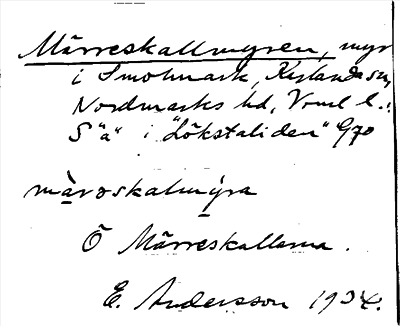 Märreskallmyren, myr
i Smolmark, Kyrlanda sn,
Nordmarks hd, Vrml l.:
S"ä" i "Lökstaliden" G70
mạ̈rəskalmýra
Ö Märreskallarna.
E. Andersson 1934.